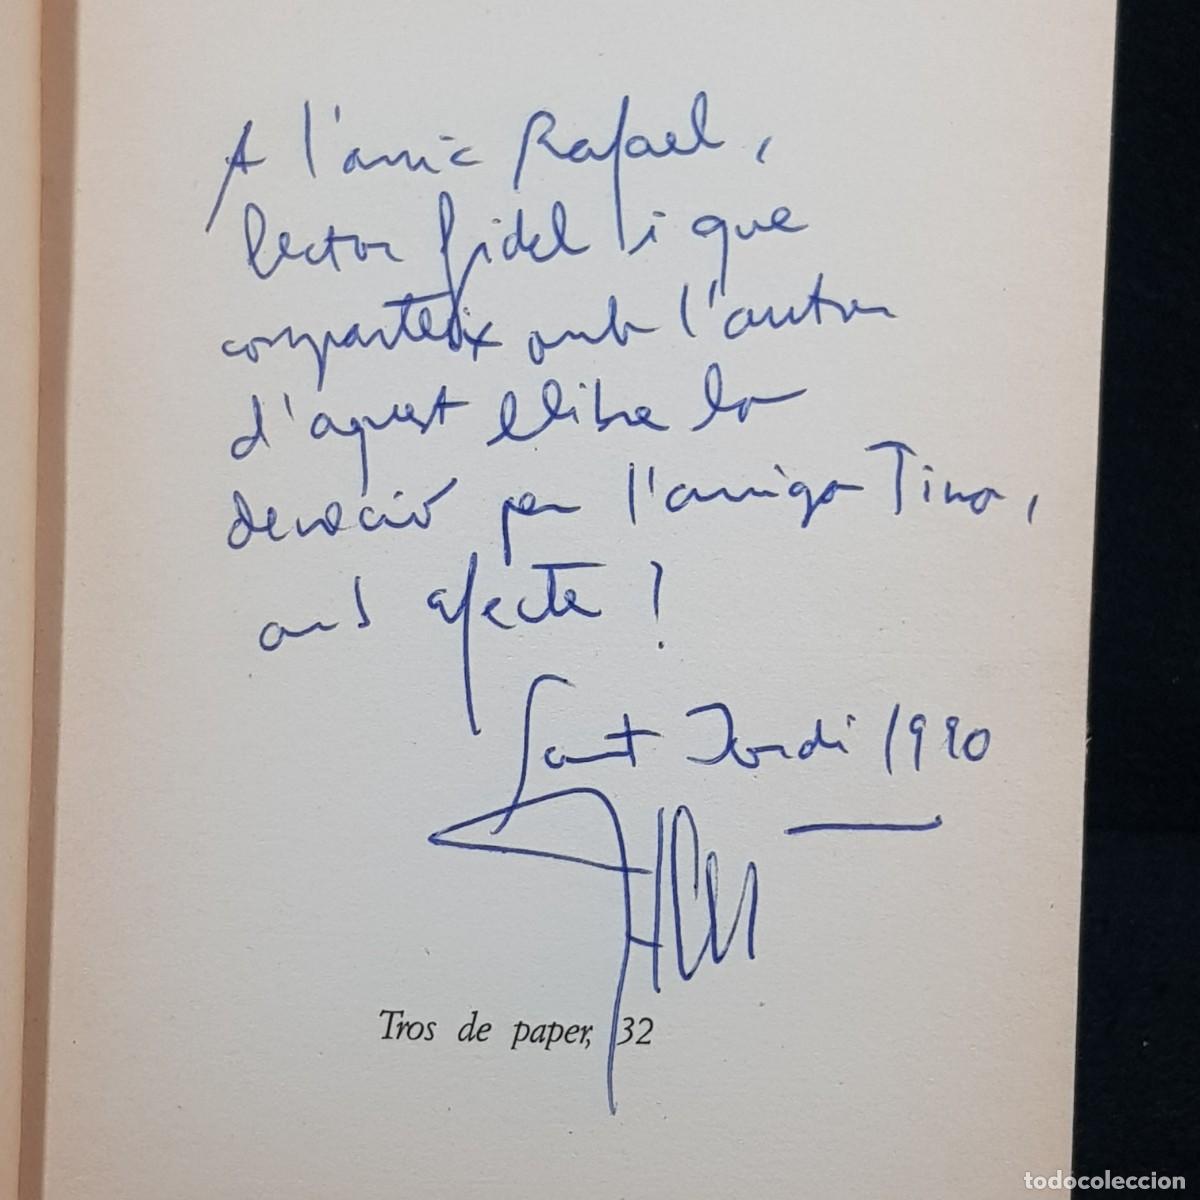 A l'amic Rafael,
lector fidel i que
comparteix amb l'autor
d'aquest llibre la
devoció per l'amiga Tina,
amb afecte!
Sant Jordi 1990
Tros de paper, 32
todocoleccion